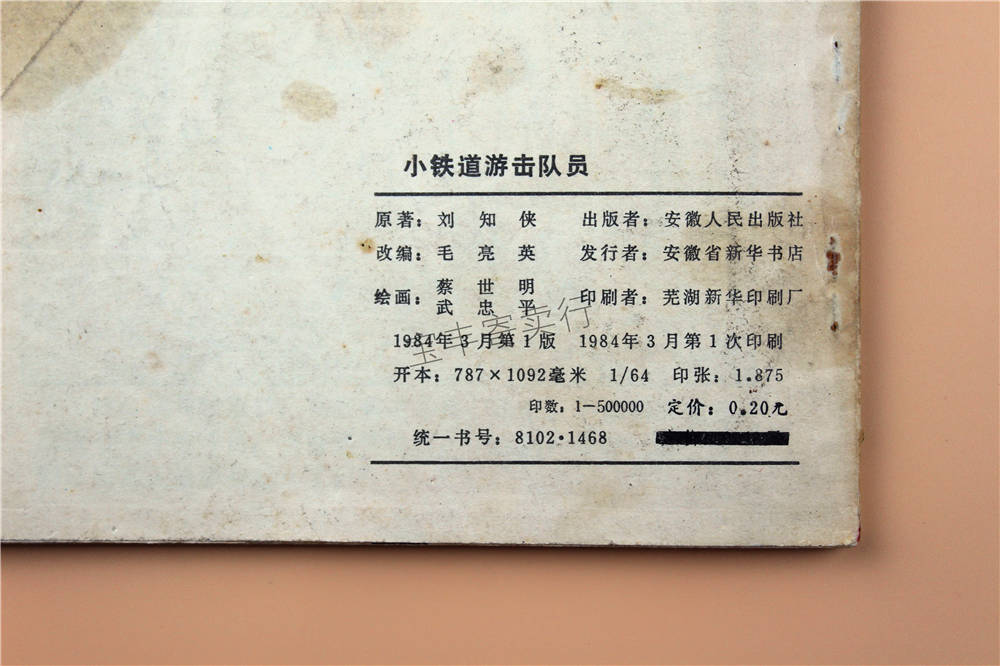 小铁道游击队员
原著：刘知侠 出版者：安徽人民出版社
改编：毛亮英 发行者：安徽省新华书店
绘画：蔡世明 武忠平 印刷者：芜湖新华印刷厂
1984年3月第1版 1984年3月第1次印刷
开本：787×1092毫米 1/64 印张：1.875
印数：1—500000 定价：0.20元
统一书号：8102·1468